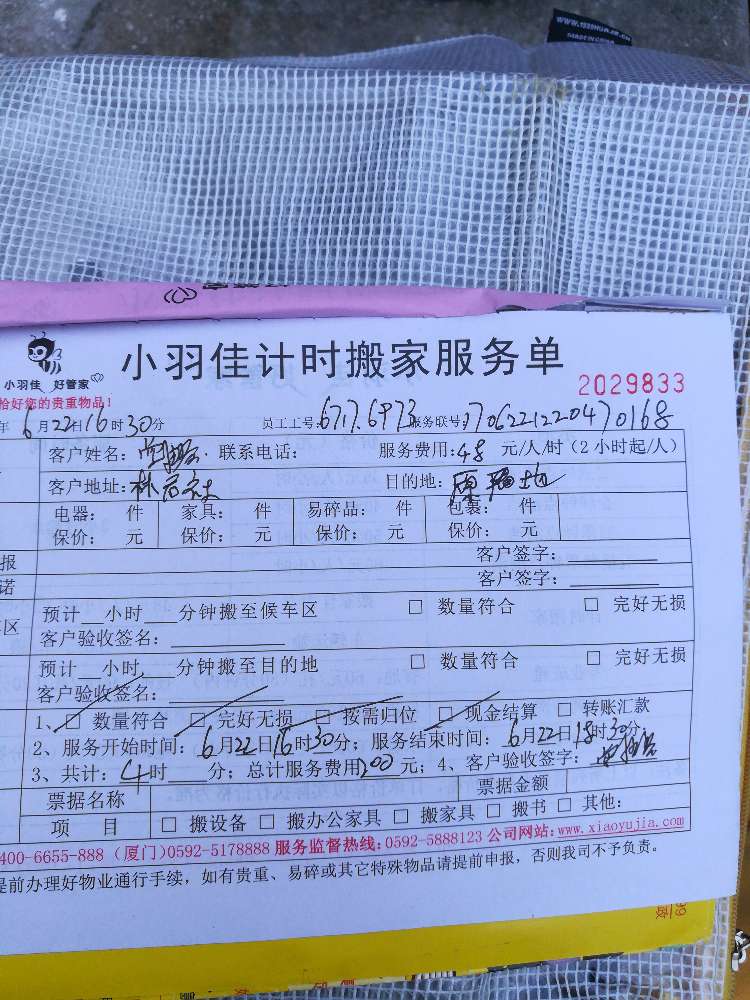 小羽佳计时搬家服务单
小羽佳 好管家
2029833
恰好您的贵重物品！
年 6月22日16时30分 员工工号:6717.6973 服务联号:1706221220470168
客户姓名: 联系电话: 服务费用:48 元/人/时（2小时起/人）
客户地址: 目的地:
电器： 件 家具： 件 易碎品： 件 包裹： 件
保价： 元 保价： 元 保价： 元 保价： 元
报 客户签字：
诺 客户签字：
车区 预计__小时___分钟搬至候车区 □ 数量符合 □ 完好无损
客户验收签名：
预计__小时,___分钟搬至目的地 □ 数量符合 □ 完好无损
客户验收签名：
1、□ 数量符合 □ 完好无损 □ 按需归位 □ 现金结算 □ 转账汇款
2、服务开始时间：6月22日16时30分；服务结束时间：6月22日18时30分
3、共计：4时___分；总计服务费用200元；4、客户验收签字：
票据名称 票据金额
项 目 □ 搬设备 □ 搬办公家具 □ 搬家具 □ 搬书 □ 其他：
400-6655-888（厦门）0592-5178888 服务监督热线：0592-5888123 公司网站：www.xiaoyujia.com
提前办理好物业通行手续，如有贵重、易碎或其它特殊物品请提前申报，否则我司不予负责。